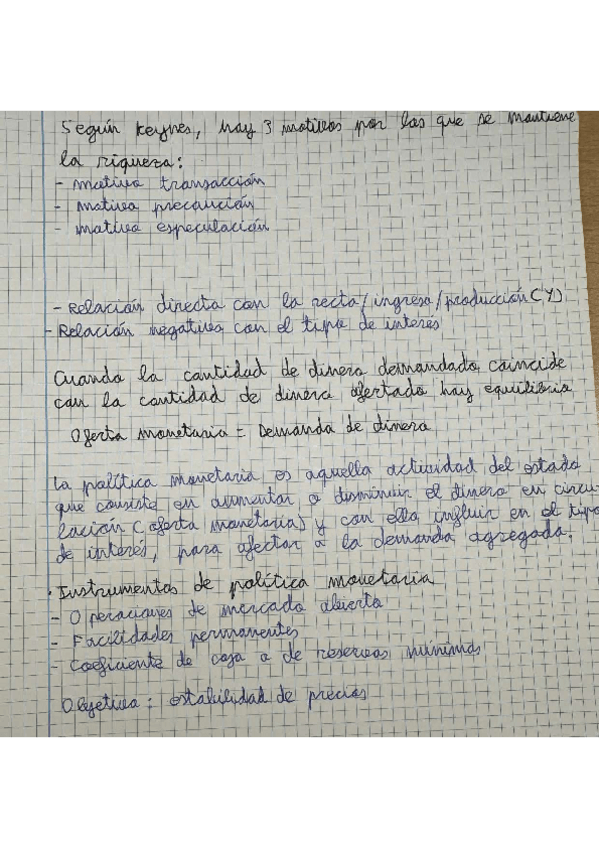 Según Keynes, hay 3 motivos por las que se mantiene
la riqueza:
- motivo transacción
- motivo precaución
- motivo especulación
- Relación directa con la recta/ingreso/producción (Y)
- Relación negativa con el tipo de interés
Cuando la cantidad de dinero demandado coincide
con la cantidad de dinero ofertado hay equilibrio
Oferta monetaria = Demanda de dinero
La política monetaria es aquella actividad del estado
que consiste en aumentar o disminuir el dinero en circu-
lación (oferta monetaria) y con ello influir en el tipo
de interés, para afectar a la demanda agregada.
· Instrumentos de política monetaria
- Operaciones de mercado abierto
- Facilidades permanentes
- Coeficiente de caja o de reservas mínimas
Objetivo: estabilidad de precios